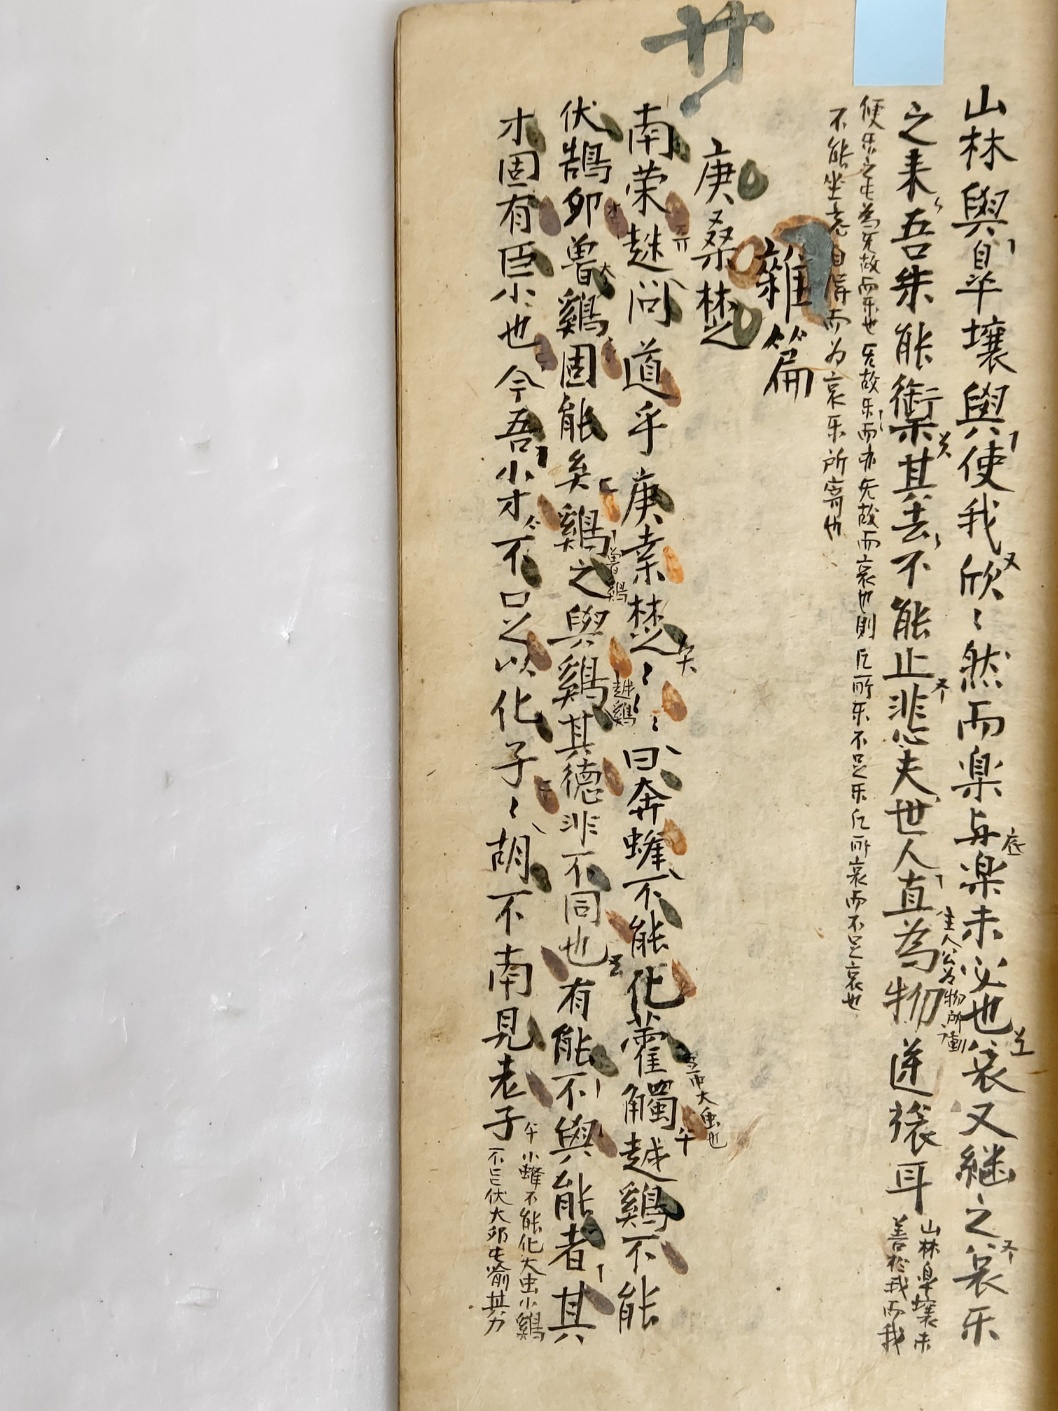 山林與皐壤與使我欣〻然而楽与楽未必也哀又継之哀乐
之来吾
能禦其去不能止悲夫世人直為物逆
耳
山林皐壤未
善於我而我
便乐之
為无故而乐也无故乐而亦无故而哀也則凡所乐不足乐凡所哀而不足哀也
不能坐忘自得而为哀乐所寄也
雜篇
廿
庚桑楚
南荣趎问道乎庚桒楚〻〻〻曰奔蜂不能化藿觸越鷄不能
伏鵠卵魯鷄固能矣鷄之與鷄其德非不同也有能不與能者其
才固有臣小也今吾小才不足以化子〻胡不南見老子
小蜂不能化大虫小鷄
伏大卵
喻其力
主人公为物所
大虫也
魯鷄
越鷄